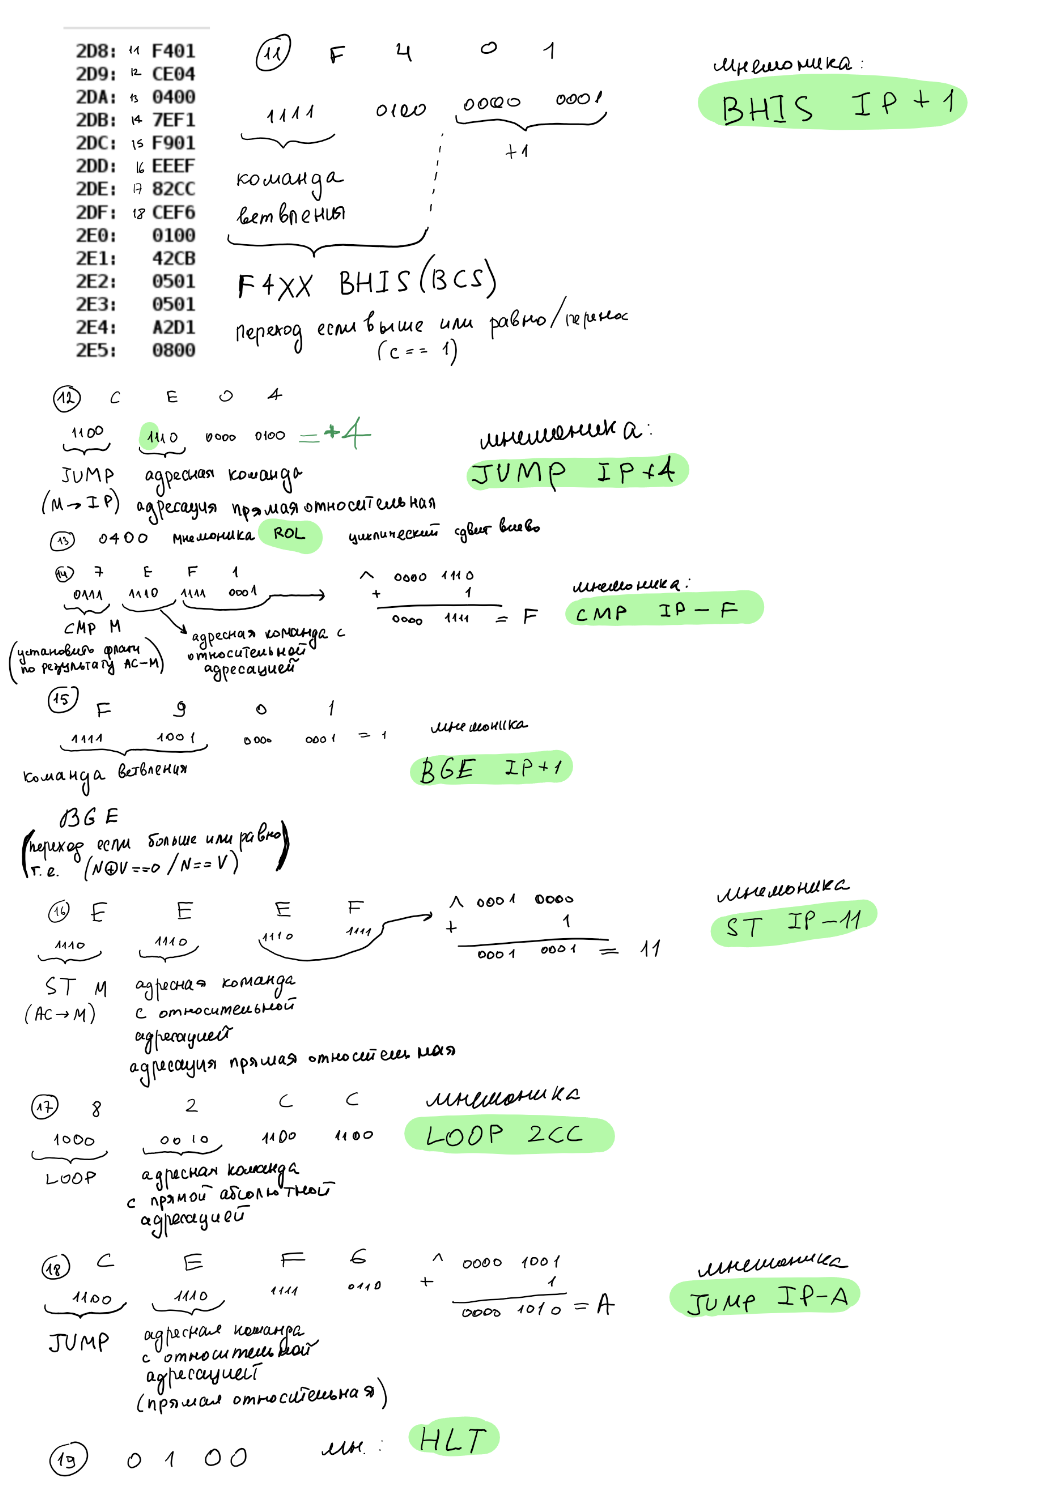 2D8: 11 F401
2D9: 12 CE04
2DA: 13 0400
2DB: 14 7EF1
2DC: 15 F901
2DD: 16 EEEF
2DE: 17 82CC
2DF: 18 CEF6
2E0: 0100
2E1: 42CB
2E2: 0501
2E3: 0501
2E4: A2D1
2E5: 0800
11 F 4 0 1
1111 0100 0000 0001
+1
команда
ветвления
F4XX BHIS(BCS)
переход если выше или равно/перенос
(c == 1)
мнемоника:
BHIS IP + 1
12 C E 0 4
1100 1110 0000 0100 = +4
JUMP адресная команда
(M→IP) адресация прямая относительная
мнемоника:
JUMP IP+4
13 0400 мнемоника ROL циклический сдвиг влево
14 7 E F 1
0111 1110 1111 0001
CMP M
(установить флаги
по результату AC-M)
адресная команда с
относительной
адресацией
^ 0000 1110
+ 1
0000 1111 = F
мнемоника:
CMP IP - F
15 F 9 0 1
1111 1001 0000 0001 = 1
команда ветвления
BGE
(переход если больше или равно
т.е. (N⊕V==0 / N==V))
мнемоника
BGE IP+1
16 E E E F
1110 1110 1110 1111
ST M адресная команда
(AC→M) с относительной
адресацией
адресация прямая относительная
^ 0001 0000
+ 1
0001 0001 = 11
мнемоника
ST IP-11
17 8 2 C C
1000 0010 1100 1100
LOOP адресная команда
с прямой абсолютной
адресацией
мнемоника
LOOP 2CC
18 C E F 6
1100 1110 1111 0110
JUMP адресная команда
с относительной
адресацией
(прямая относительная)
^ 0000 1001
+ 1
0000 1010 = A
мнемоника
JUMP IP-A
19 0 1 0 0 мн.: HLT